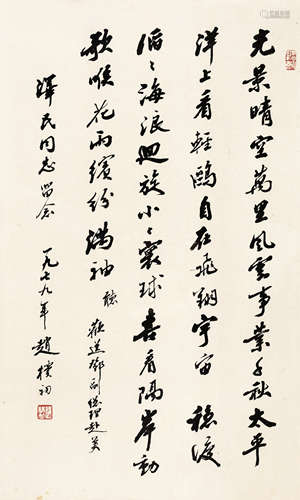 光景晴空萬里風雲事業千秋太平
洋上看輕鷗自在飛翔宇宙 穩渡
滔〻海浪迴旋小〻寰球喜看隔岸動
歌喉花雨繽紛滿袖
歡送鄧副總理赴美
民同志留念
一九七九年 趙樸初